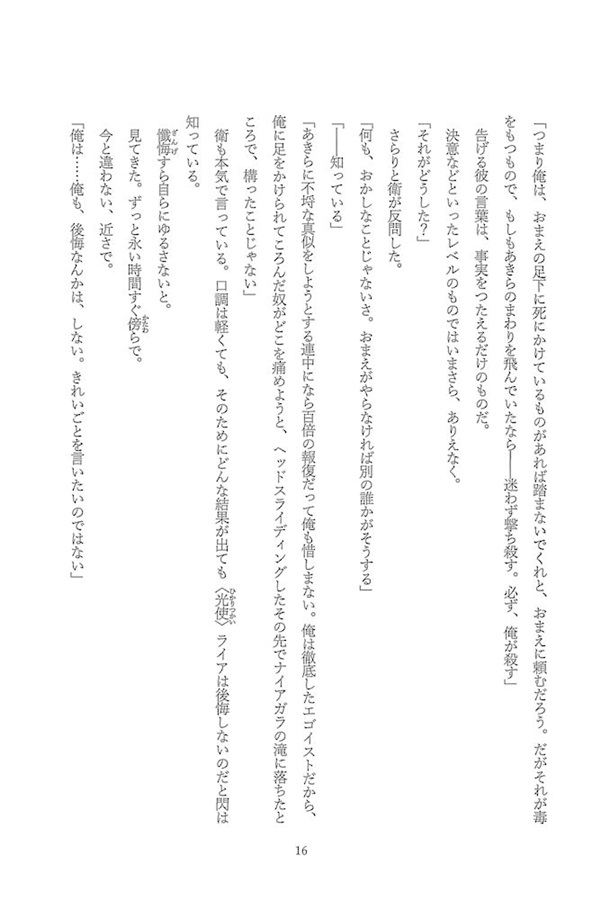 「つまり俺は、おまえの足下に死にかけているものがあれば踏まないでくれと、おまえに頼むだろう。だがそれが毒
をもつもので、もしもあきらのまわりを飛んでいたなら――迷わず撃ち殺す。必ず、俺が殺す」
告げる彼の言葉は、事実をつたえるだけのものだ。
決意などといったレベルのものではいまさら、ありえなく。
「それがどうした？」
さらりと衛が反問した。
「何も、おかしなことじゃないさ。おまえがやらなければ別の誰かがそうする」
「――知っている」
「あきらに不埒な真似をしようとする連中になら百倍の報復だって俺も惜しまない。俺は徹底したエゴイストだから、
俺に足をかけられてころんだ奴がどこを痛めようと、ヘッドスライディングしたその先でナイアガラの滝に落ちたと
ころで、構ったことじゃない」
衛も本気で言っている。口調は軽くても、そのためにどんな結果が出ても〈光使〉ライアは後悔しないのだと閃は
ひかりつかい
知っている。
懺悔すら自らにゆるさないと。
ざんげ
見てきた。ずっと永い時間すぐ傍らで。
かたわ
今と違わない、近さで。
「俺は……俺も、後悔なんかは、しない。きれいごとを言いたいのではない」
16